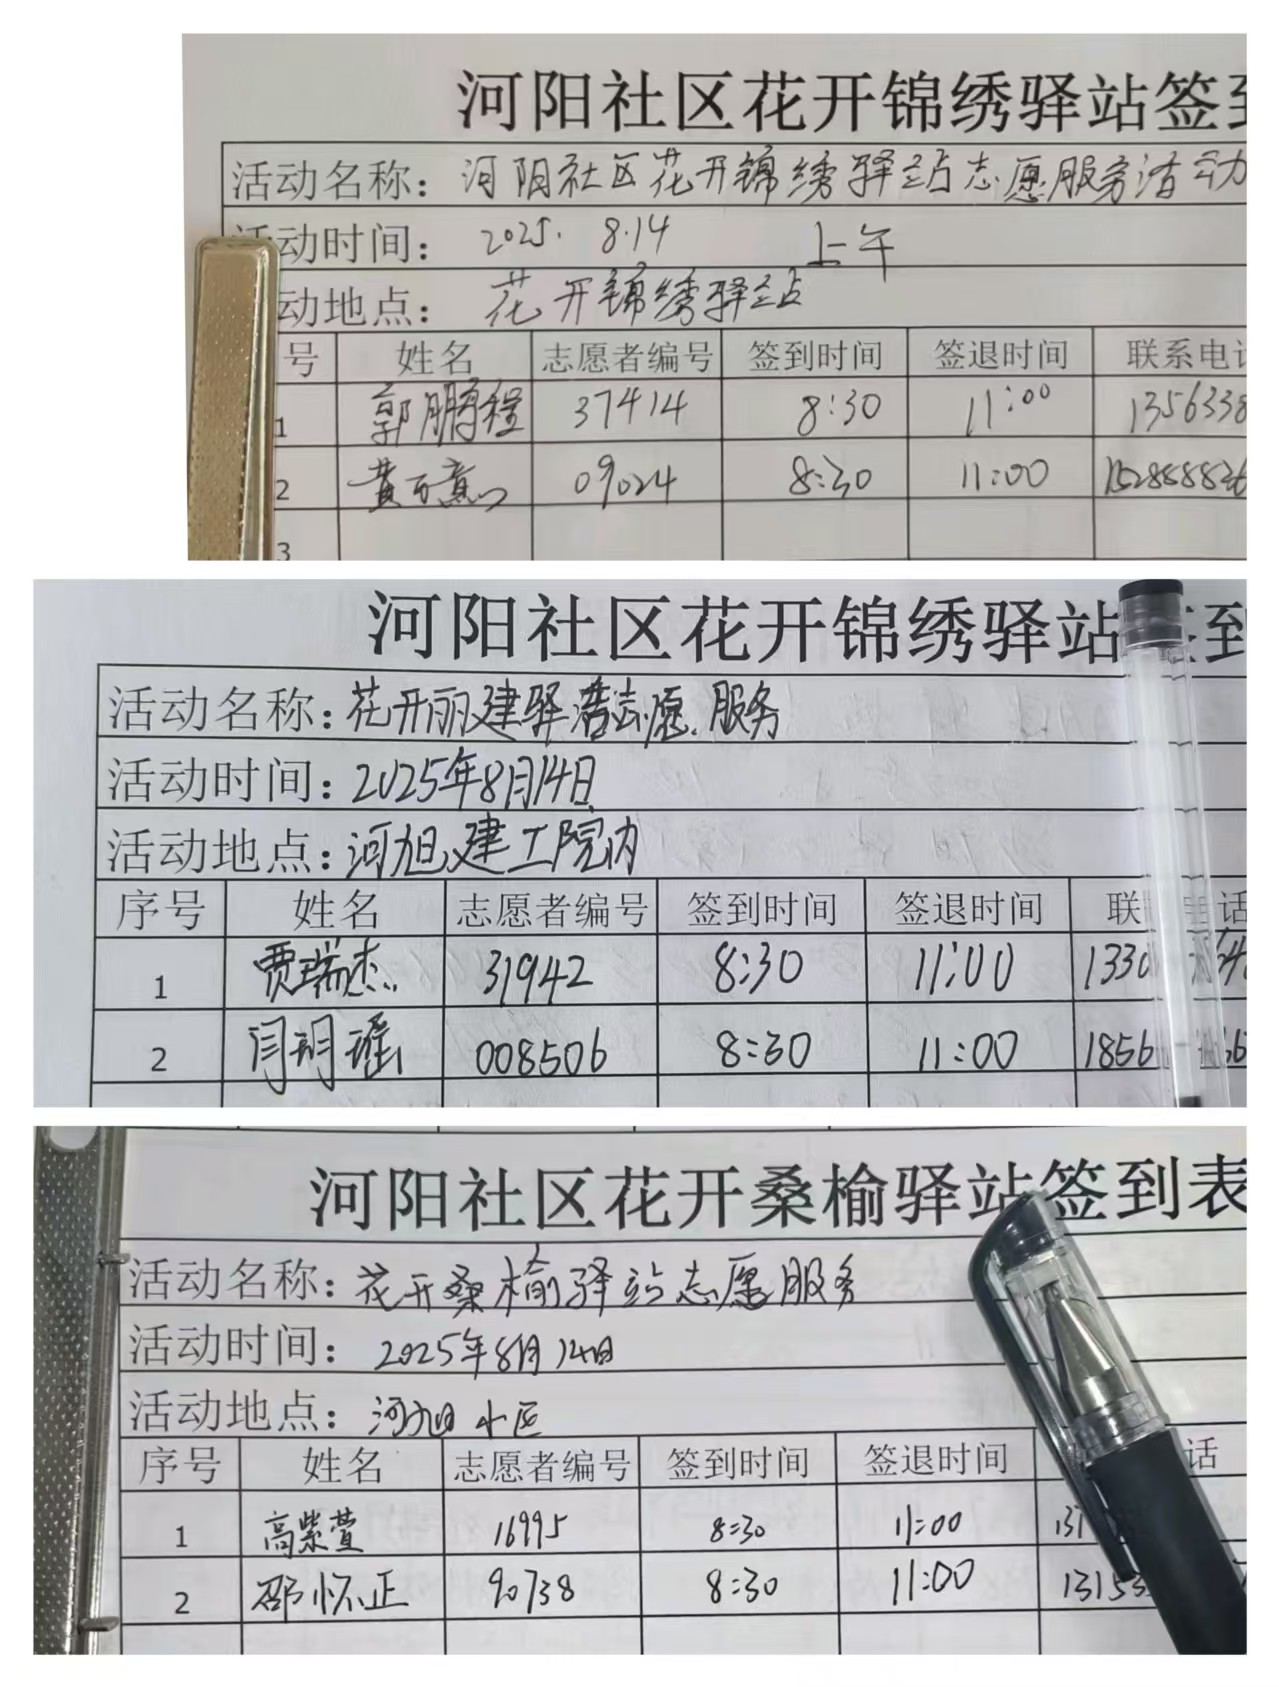 河阳社区花开锦绣驿站签到
活动名称：河阳社区花开锦绣驿站志愿服务活动
活动时间：2025. 8.14 上午
动地点：花开锦绣驿站
号 姓名 志愿者编号 签到时间 签退时间 联系电话
1 郭鹏程 37414 8:30 11:00 1356338
2 黄 09024 8:30 11:00
3
河阳社区花开锦绣驿站签到
活动名称：花开丽建驿站志愿服务
活动时间：2025年8月14日
活动地点：河旭建工院内
序号 姓名 志愿者编号 签到时间 签退时间 联 话
1 贾瑞杰 31942 8:30 11:00 1330
2 闫玥瑶 008506 8:30 11:00 1856
河阳社区花开桑榆驿站签到表
活动名称：花开桑榆驿站志愿服务
活动时间：2025年8月14日
活动地点：河旭小区
序号 姓名 志愿者编号 签到时间 签退时间 话
1 高紫萱 16995 8:30 11:00 131
2 邵怀正 90738 8:30 11:00 13153